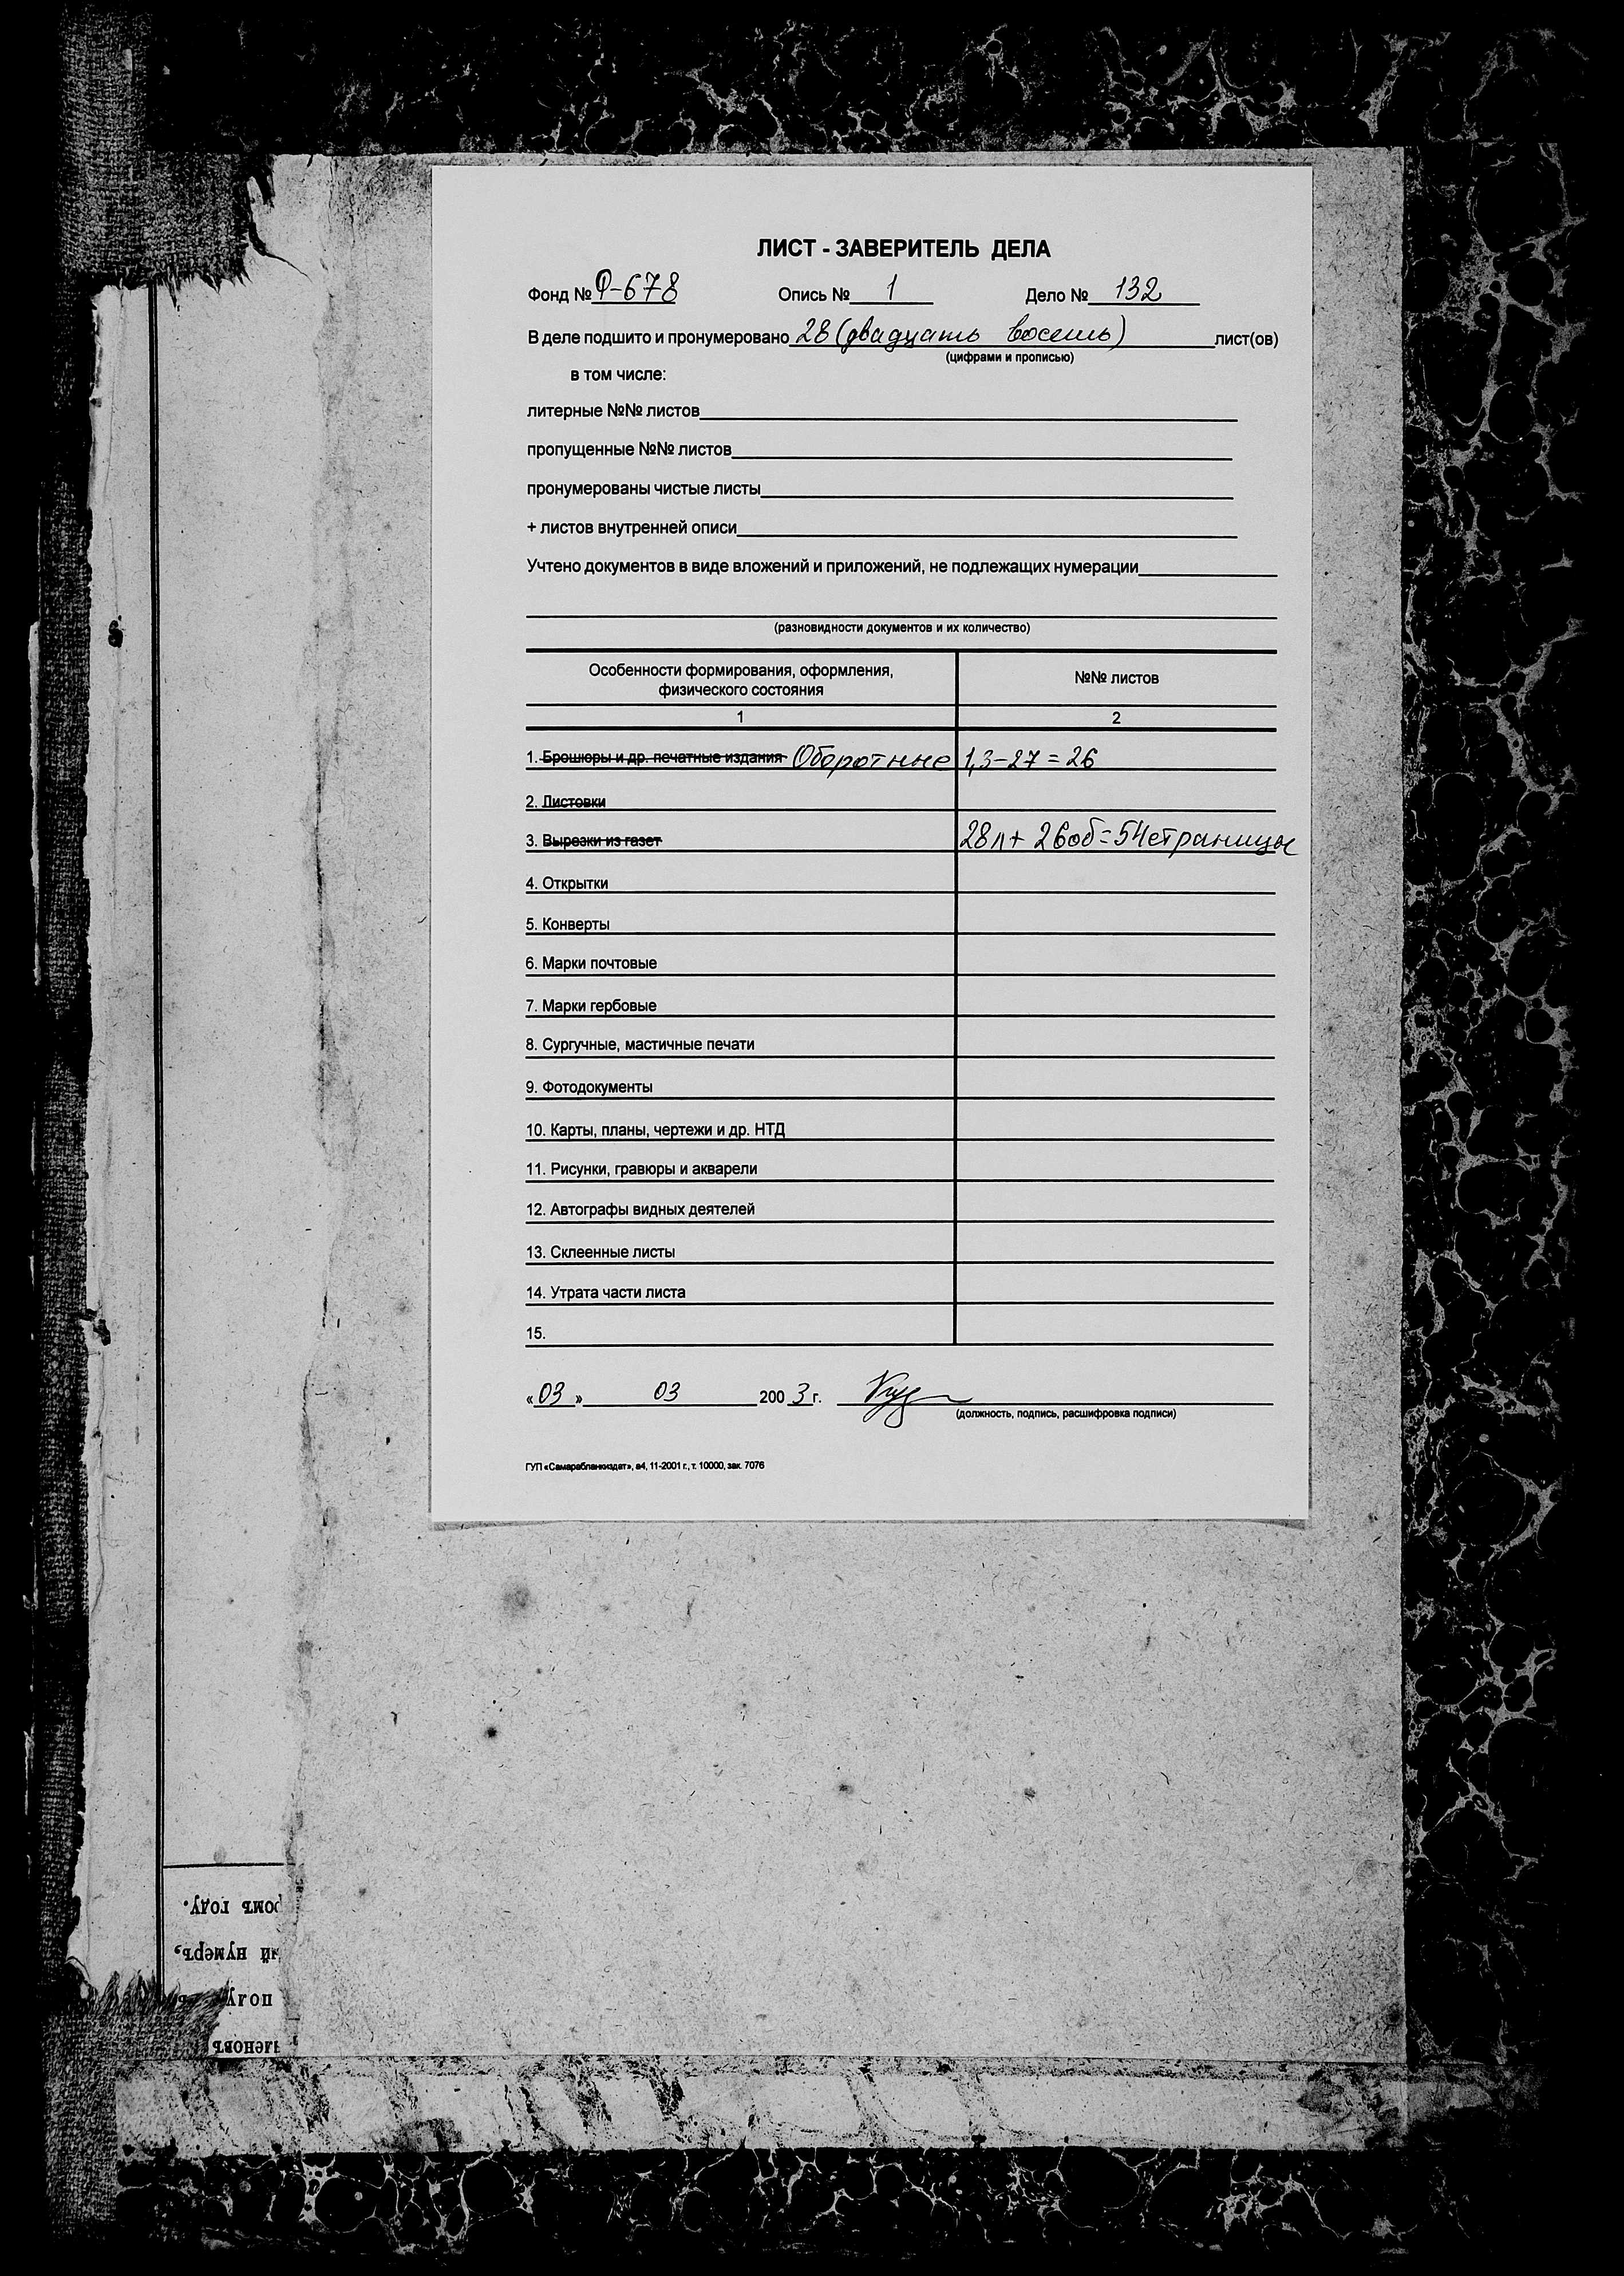 ЛИСТ - ЗАВЕРИТЕЛЬ ДЕЛА
Фонд № Ф-678 Опись № 1 Дело № 132
В деле подшито и пронумеровано 28 (двадцать восемь) лист(ов)
(цифрами и прописью)
в том числе:
литерные №№ листов
пропущенные №№ листов
пронумерованы чистые листы
+ листов внутренней описи
Учтено документов в виде вложений и приложений, не подлежащих нумерации
(разновидности документов и их количество)
Особенности формирования, оформления,
физического состояния
№№ листов
1 2
1. Брошюры и др. печатные издания Оборотные 1,3-27 = 26
2. Листовки
3. Вырезки из газет 28л + 26об = 54 страницы
4. Открытки
5. Конверты
6. Марки почтовые
7. Марки гербовые
8. Сургучные, мастичные печати
9. Фотодокументы
10. Карты, планы, чертежи и др. НТД
11. Рисунки, гравюры и акварели
12. Автографы видных деятелей
13. Склеенные листы
14. Утрата части листа
15.
«03» 03 2003 г.
(должность, подпись, расшифровка подписи)
ГУП «Самарабланкиздат», а4, 11-2001 г., т. 10000, зак. 7076
ромъ году.
й нумеръ,